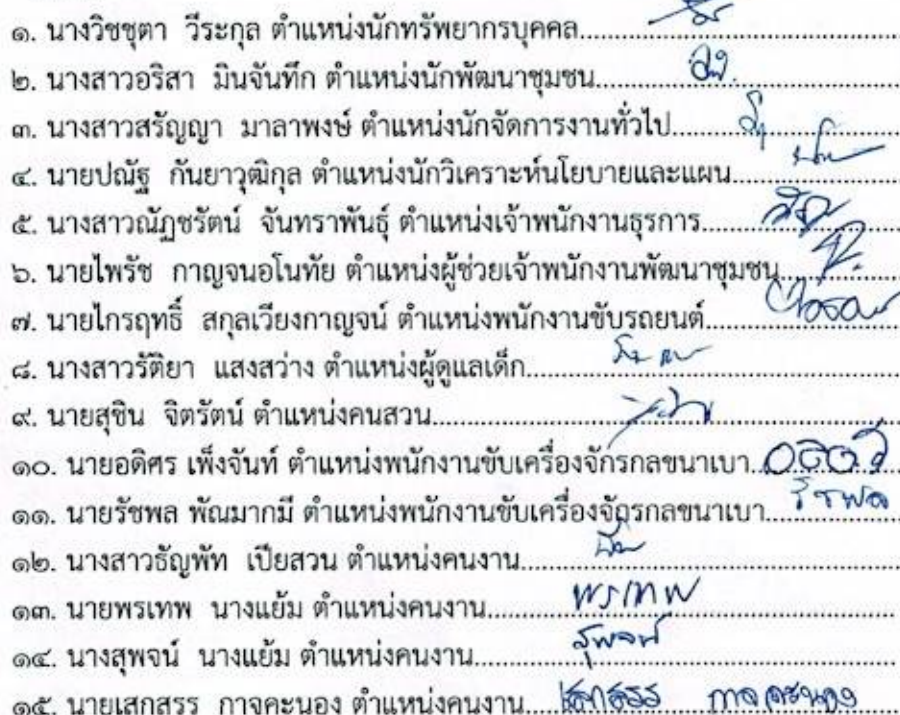 ๑. นางวิชชุตา วีระกุล ตำแหน่งนักทรัพยากรบุคคล
๒. นางสาวอริสา มินจันทึก ตำแหน่งนักพัฒนาชุมชน
๓. นางสาวสรัญญา มาลาพงษ์ ตำแหน่งนักจัดการงานทั่วไป
๔. นายปณัฐ กันยาวุฒิกุล ตำแหน่งนักวิเคราะห์นโยบายและแผน
๕. นางสาวณัฏชรัตน์ จันทราพันธุ์ ตำแหน่งเจ้าพนักงานธุรการ
๖. นายไพรัช กาญจนอโนทัย ตำแหน่งผู้ช่วยเจ้าพนักงานพัฒนาชุมชน
๗. นายไกรฤทธิ์ สกุลเวียงกาญจน์ ตำแหน่งพนักงานขับรถยนต์
๘. นางสาวรัติยา แสงสว่าง ตำแหน่งผู้ดูแลเด็ก
๙. นายสุชิน จิตรัตน์ ตำแหน่งคนสวน
๑๐. นายอดิศร เพ็งจันท์ ตำแหน่งพนักงานขับเครื่องจักรกลขนาเบา
๑๑. นายรัชพล พัณมากมี ตำแหน่งพนักงานขับเครื่องจักรกลขนาเบา รัชพล
๑๒. นางสาวธัญพัท เปียสวน ตำแหน่งคนงาน
๑๓. นายพรเทพ นางแย้ม ตำแหน่งคนงาน พรเทพ
๑๔. นางสุพจน์ นางแย้ม ตำแหน่งคนงาน สุพจน์
๑๕. นายเสกสรร กาจคะนอง ตำแหน่งคนงาน เสกสรร กาจคะนอง